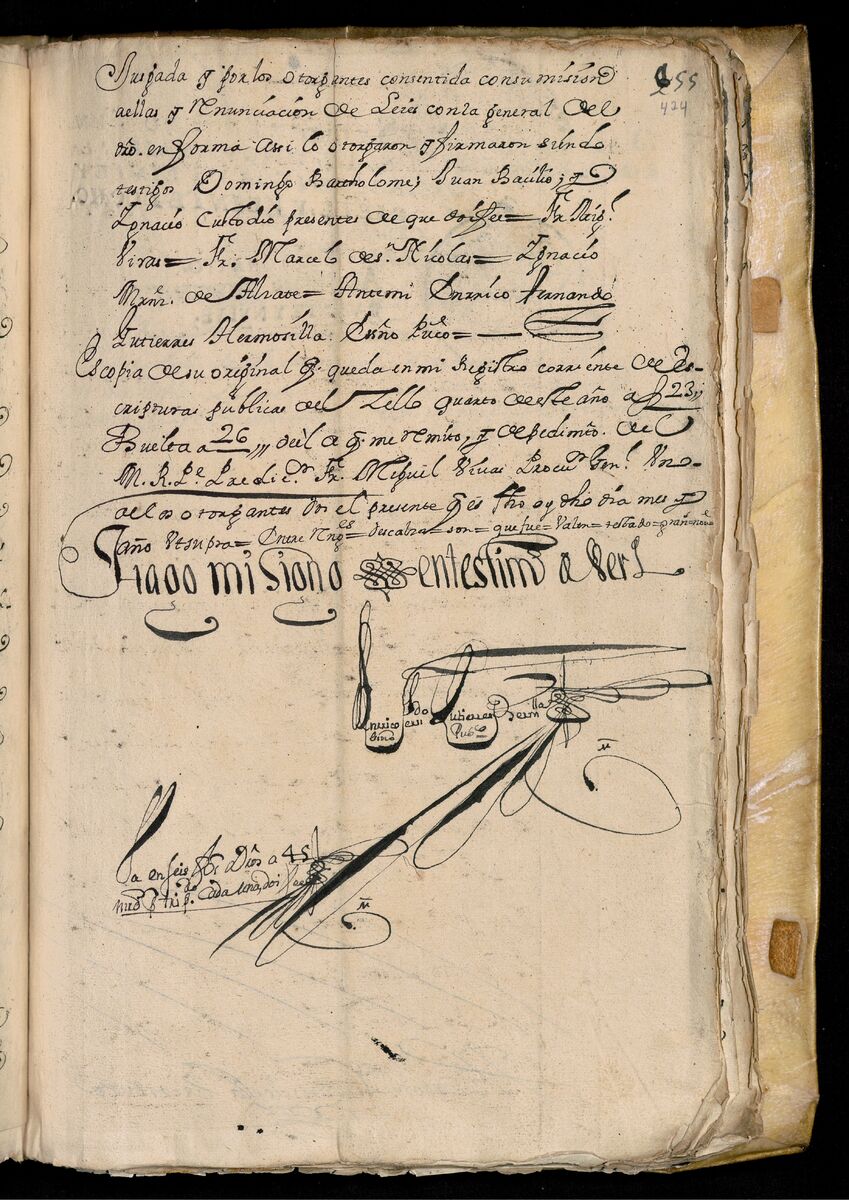 655
424
Jusgada y por los otorgantes consentida con sumision
a ellas y Renunciacion de Leies con la general del
dro. en forma assi lo otorgaron y firmaron siendo
testigos Domingo Bartholome; Juan Baulio; y
Ignacio Custodio presentes de que doi fee = Fr. Mig.l
Vivas = Fr. Marcel de Sn. Nicolas = Ignacio
Mrnz. de Alvate = Ante mi Enrrico Fernando
Gutierres Hermosilla Essno Puco =
Es copia de su original q. queda en mi Registro corriente de Es-
cripturas publicas del Sello quarto de este año a f 23,,
Buelta a 26,,, del a q. me Remito, y de pedimto. del
M. R. Pe. Predicor. Fr. Miguel Vivas Procur Genl. Vno
de los otorgantes doi el presente q es fho oy dho dia mes y
año Vt supra = Entre Rngs = = son = que fue = Valen = testado =
Y hago mi Signo en testimo de Verd
Enrrico Fdo Gutierres Herm lla
Essno Pubco
Va en seis f a 45
cada una, doi fee